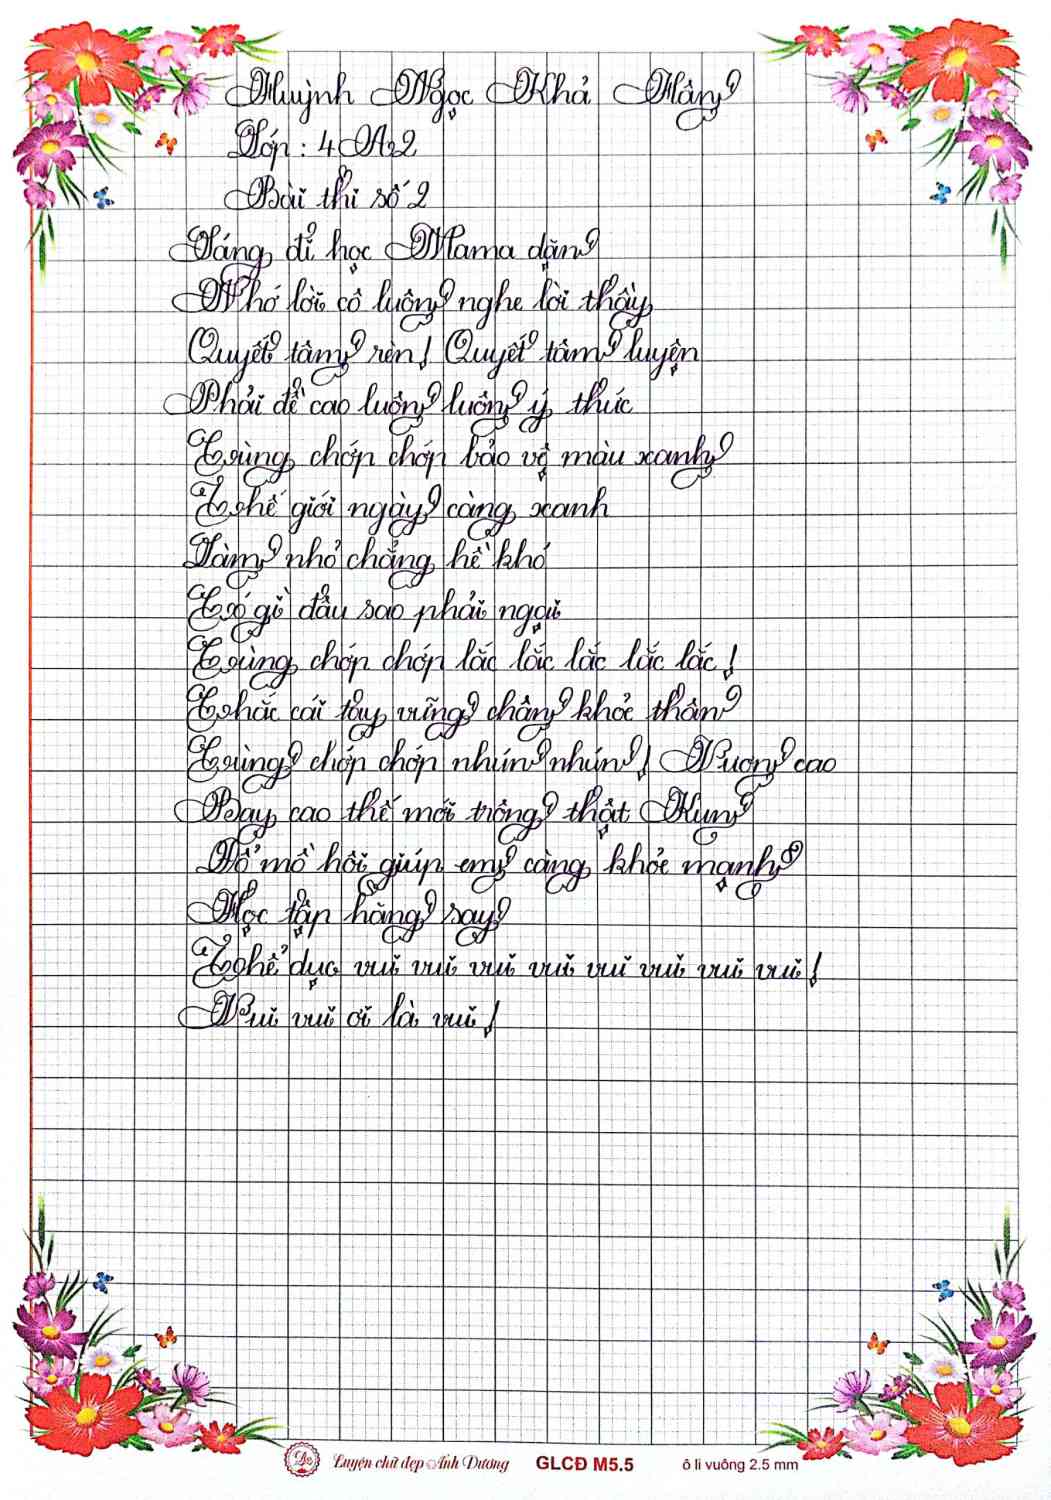 Huỳnh Ngọc Khả Hân
Lớp : 4A2
Bài thi số 2
Sáng đi học Mama dặn
Nhớ lời cô luôn nghe lời thầy
Quyết tâm rèn! Quyết tâm luyện
Phải đề cao luôn luôn ý thức
Cùng chớp chớp bảo vệ màu xanh
Thế giới ngày càng xanh
Làm nhỏ chẳng hề khó
Có gì đâu sao phải ngại
Cùng chớp chớp lắc lắc lắc lắc lắc!
Chắc cái tay vững chân khỏe thân
Cùng chớp chớp nhún nhún! Vươn cao
Bay cao thế mới trông thật Kun
Đổ mồ hôi giúp em càng khỏe mạnh
Học tập hăng say
Thể dục vui vui vui vui vui vui vui vui!
Vui vui ơi là vui!
Luyện chữ đẹp Ánh Dương GLCĐ M5.5 ô li vuông 2.5 mm